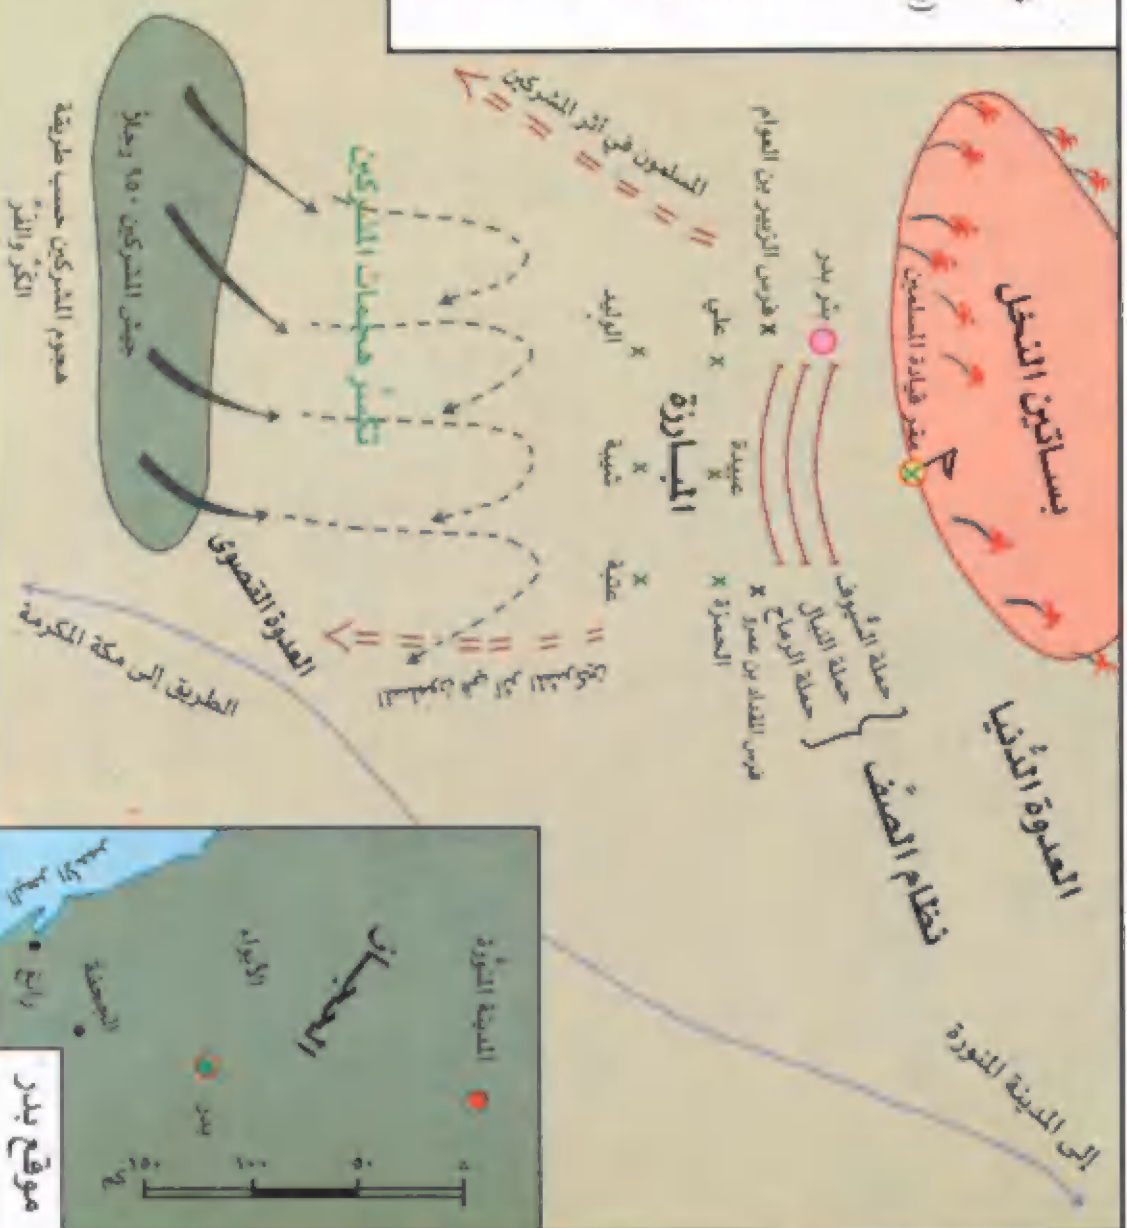 بساتين النخل
مقر قيادة المسلمين
العدوة الدُّنيا
نظام الصَّف
حملة السُّيوف
حملة النبال
حملة الرماح
بئر بدر
x فرس الزبير بن العوام
x فرس المقداد بن عمرو
علي x
عبيدة x
x الحمزة
المبارزة
الوليد x
شيبة x
عتبة x
المسلمون في أثر المشركين
المسلمون في أثر المشركين
تكسُّر هجمات المشركين
جيش المشركين ٩٥٠ رجلاً
هجوم المشركين حسب طريقة
الكرّ والفرّ
العدوة القصوى
الطريق إلى مكة المكرمة
إلى المدينة المنورة
المدينة المنوّرة
الحجاز
الأبواء
بدر
الجحفة
رابغ
البحر الأحمر
٠ ٥٠ ١٠٠ ١٥٠
موقع بدر